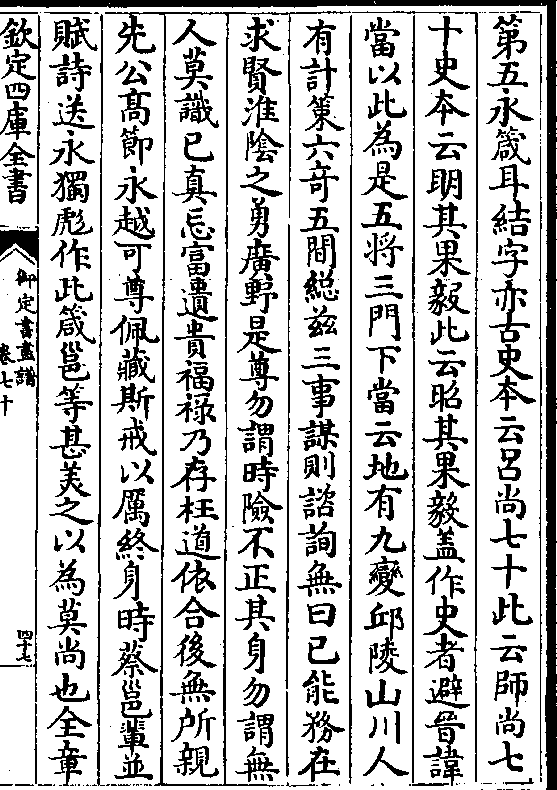 第五永箴耳結字亦古史本云呂尚七十此云師尚七
十史本云明其果毅此云昭其果毅盖作史者避晉諱
當以此為是五将三門下當云地有九變邱陵山川人
有計策六竒五間緫兹三事謀則諮詢無曰已能務在
求賢淮隂之勇廣野是尊勿謂時險不正其身勿謂無
人莫識已真忘富遺貴福禄乃存枉道依合後無所親
先公髙節永越可尊佩藏斯戒以厲終身時蔡邕輩並
賦詩送永獨彪作此箴邕等甚美之以為莫尚也全章
欽定四庫全書
御定書畫譜
卷七十
四十七